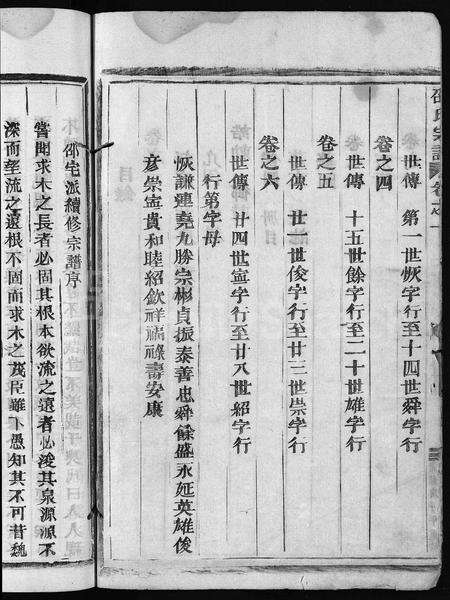 邵氏宗譜 卷之
世傳 第一世恢字行至十四世舜字行
卷之四
世傳 十五世餘字行至二十世雄字行
卷之五
世傳 廿一世俊字行至廿三世崇字行
卷之六
世傳 廿四世寧字行至廿八世紹字行
行第字母
恢謙連堯九勝宗彬貞振泰善忠舜餘盛永延英雄俊
彥崇寧貴和睦紹欽祥福祿壽安康
邵宅派續修宗譜序
嘗聞求木之長者必固其根本欲流之遠者必浚其泉源源不
深而望流之遠根不固而求木之茂臣雖下愚知其不可昔魏